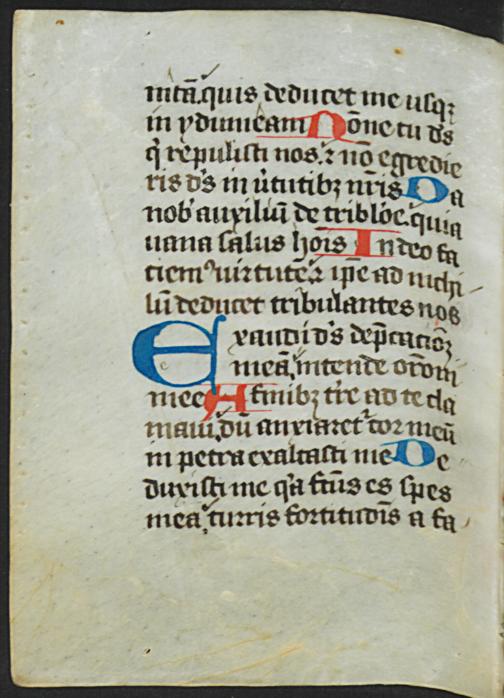 nitā. quis deducet me usqꝫ
in ydumeam Nōne tu ds̄
q̇ repulisti nos. ⁊ nō egredie
ris ds̄ in u̇tutibꝫ nr̄is Da
nob' auxiliū de tribl̄oe. quia
uana salus hoīs In deo fa
ciem' uirtutē. ⁊ ip̄e ad nichi
lū deducet tribulantes nos
Exaudi ds̄ dep̄catiōꝫ
meā, intende orōni
mee A finibꝫ tr̄e ad te cla
maui, dū anxiaret̄ cor meū
in petra exaltasti me De
duxisti me q̇a fc̄us es spes
mea, turris fortitudīs a fa